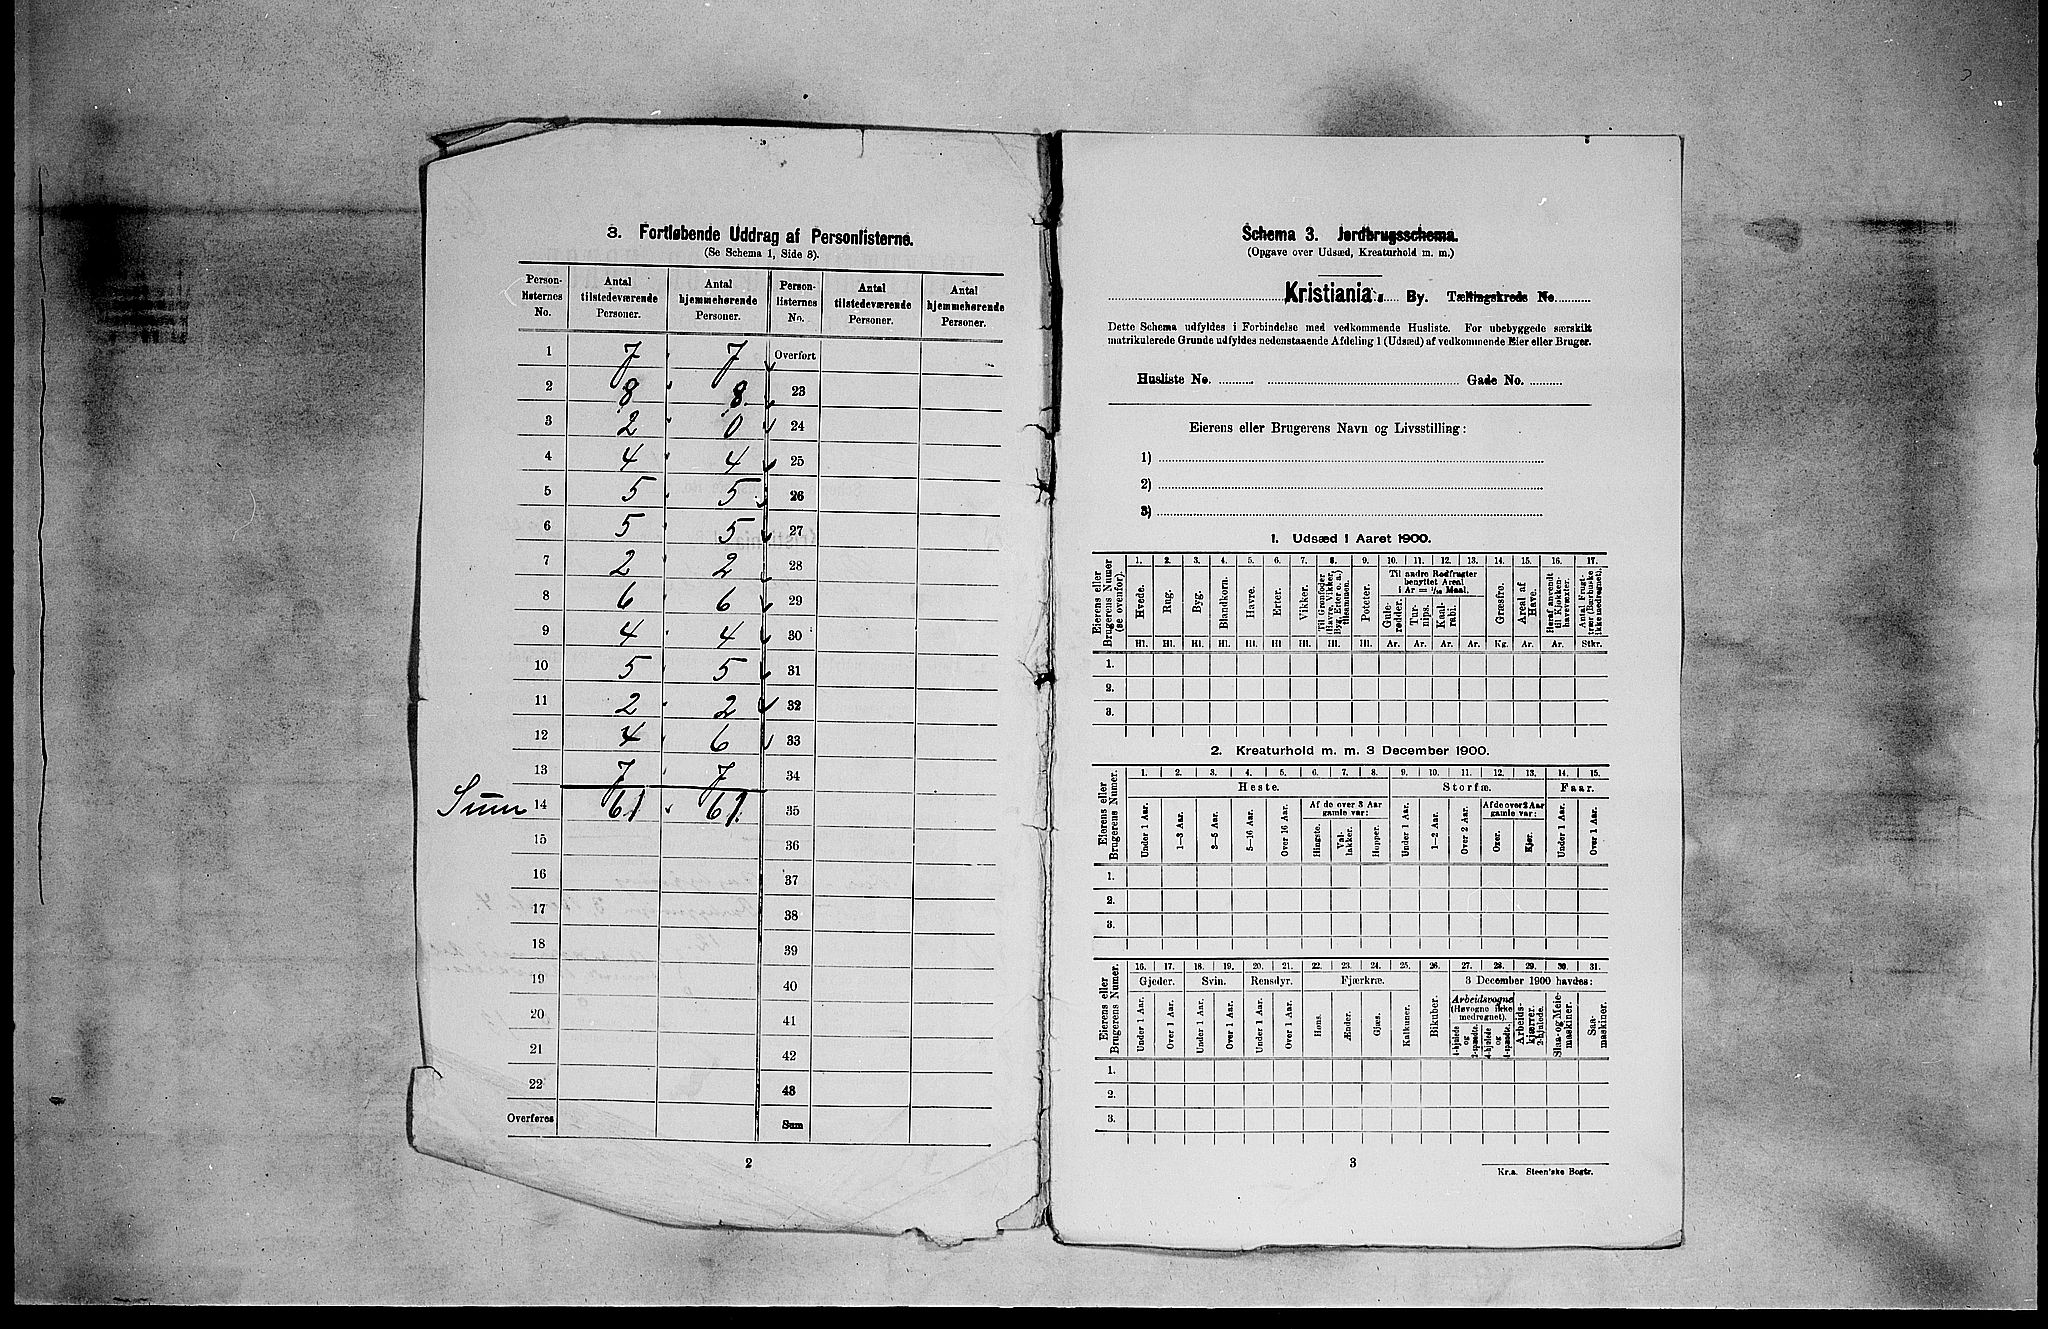 3. Fortløbende Uddrag af Personlisterne.
(Se Schema 1, Side 3).
Person-listernes No. | Antal tilstedeværende Personer. | Antal hjemmehørende Personer. | Person-listernes No. | Antal tilstedeværende Personer. | Antal hjemmehørende Personer.
1 7 7 Overført
2 8 8 23
3 2 0 24
4 4 4 25
5 5 5 26
6 5 5 27
7 2 2 28
8 6 6 29
9 4 4 30
10 5 5 31
11 2 2 32
12 4 6 33
13 7 7 34
Sum 14 61 61 35
15 36
16 37
17 38
18 39
19 40
20 41
21 42
22 43
Overføres Sum
2
Schema 3. Jordbrugsschema.
(Opgave over Udsæd, Kreaturhold m. m.)
Kristiania By. Tællingskreds No.
Dette Schema udfyldes i Forbindelse med vedkommende Husliste. For ubebyggede særskilt
matrikulerede Grunde udfyldes nedenstaaende Afdeling 1 (Udsæd) af vedkommende Eier eller Bruger.
Husliste No. Gade No.
Eierens eller Brugerens Navn og Livsstilling:
1)
2)
3)
1. Udsæd i Aaret 1900.
Eierens eller Brugerens Numer (se ovenfor).
1. 2. 3. 4. 5. 6. 7. 8. 9. 10. 11. 12. 13. 14. 15. 16. 17.
Hvede. Rug. Byg. Blandkorn. Havre. Erter. Vikker. Til Grønfoder (Havre, Vikker, Byg, Erter o. a.) tilsammen. Poteter.
Til andre Rodfrugter benyttet Areal i Ar = 1/10 Maal.
Gule-rødder. Tur-nips. Kaal-rabi.
Græsfrø. Areal af Have. Heraf anvendt til Kjøkken-havevæxter. Antal Frugt-trær (Bærbuske ikke medregnet).
Hl. Hl. Hl. Hl. Hl. Hl Hl. Hl. Hl. Ar. Ar. Ar. Ar. Kg. Ar. Ar. Stkr.
1.
2.
3.
2. Kreaturhold m. m. 3 December 1900.
Eierens eller Brugerens Numer.
1. 2. 3. 4. 5. 6. 7. 8. 9. 10. 11. 12. 13. 14. 15.
Heste. Storfæ. Faar.
Af de over 3 Aar gamle var: Af de over 2 Aar gamle var:
Under 1 Aar. 1—3 Aar. 3—5 Aar. 5—16 Aar. Over 16 Aar. Hingste. Val-lakker. Hopper. Under 1 Aar. 1—2 Aar. Over 2 Aar. Oxer. Kjør. Under 1 Aar. Over 1 Aar.
1.
2.
3.
Eierens eller Brugerens Numer.
16. 17. 18. 19. 20. 21. 22. 23. 24. 25. 26. 27. 28. 29. 30. 31.
Gjeder. Svin. Rensdyr. Fjærkræ. 3 December 1900 havdes:
Under 1 Aar. Over 1 Aar. Under 1 Aar. Over 1 Aar. Under 1 Aar. Over 1 Aar. Høns. Ænder. Gjæs. Kalkuner. Bikuber.
Arbeidsvogne (Høvogne ikke medregnet).
4-hjulede og 2-spændte. 4-hjulede og 1-spændte. Arbeids-kjærrer, 2-hjulede. Slaa- og Meie-maskiner. Saa-maskiner.
1.
2.
3.
3
Kr.a. Steen'ske Bogtr.